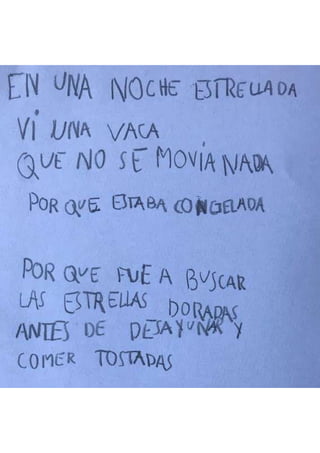 EN UNA NOCHE ESTRELLADA
Vi UNA VACA
QUE NO SE MOVIA NADA
POR QUE ESTABA CONGELADA
POR QUE FUE A BUSCAR
LAS ESTRELLAS DORADAS
ANTES DE DESAYUNAR Y
COMER TOSTADAS